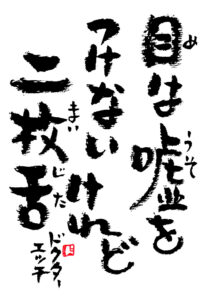 目は嘘を
つけないけれど
二枚舌
ドクター
エッチ
め
うそ
まい
じた